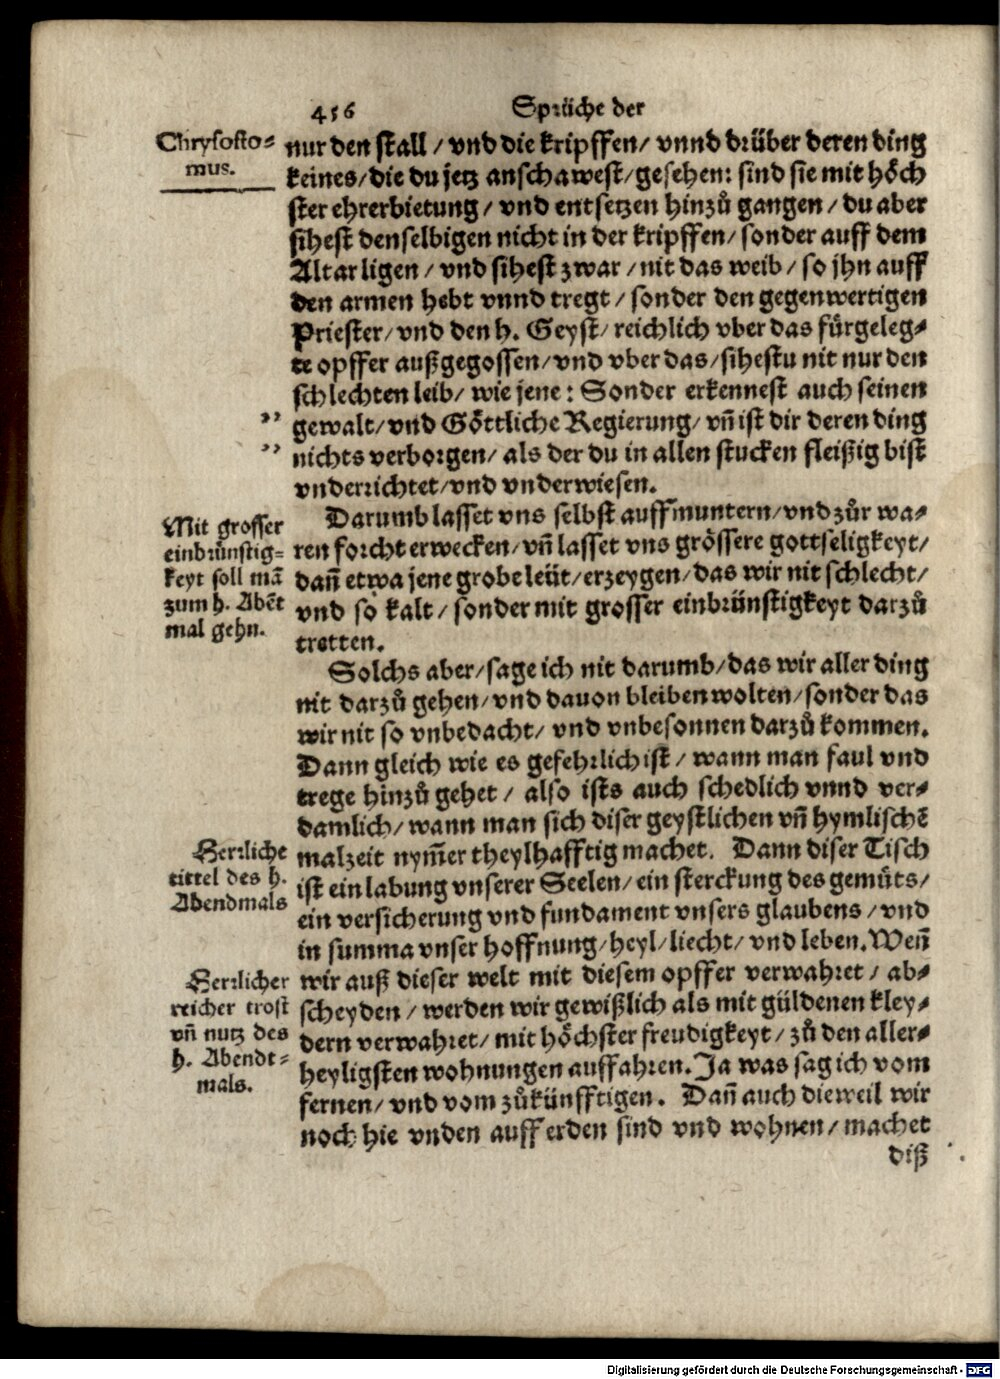 456 Sprüche der
Chrysosto-
mus.
nur den stall / vnd die kripffen / vnnd drüber deren ding
keines / die du jetz anschawest / gesehen: sind sie mit höch
ster ehrerbietung / vnd entsetzen hinzů gangen / du aber
sihest denselbigen nicht in der kripffen / sonder auff dem
Altar ligen / vnd sihest zwar / nit das weib / so jhn auff
den armen hebt vnnd tregt / sonder den gegenwertigen
Priester / vnd den h. Geyst / reichlich vber das fürgeleg-
te opffer außgegossen / vnd vber das / sihestu nit nur den
schlechten leib / wie jene: Sonder erkennest auch seinen
„ gewalt / vnd Göttliche Regierung / vñ ist dir deren ding
„ nichts verborgen / als der du in allen stucken fleißig bist
vnderrichtet / vnd vnderwiesen.
Mit grosser
einbrünstig-
keyt soll mā
zum h. Abēt
mal gehn.
Darumb lasset vns selbst auffmuntern / vnd zůr wa-
ren forcht erwecken / vñ lasset vns grössere gottseligkeyt /
dañ etwa jene grobe leüt / erzeygen / das wir nit schlecht /
vnd so kalt / sonder mit grosser einbrünstigkeyt darzů
tretten.
Solchs aber / sage ich nit darumb / das wir aller ding
nit darzů gehen / vnd dauon bleiben wolten / sonder das
wir nit so vnbedacht / vnd vnbesonnen darzů kommen.
Dann gleich wie es gefehrlich ist / wann man faul vnd
trege hinzů gehet / also ists auch schedlich vnnd ver-
damlich / wann man sich diser geystlichen vñ hymlischē
Herrliche
tittel des h.
Abendmals
malzeit nym̄er theylhafftig machet. Dann diser Tisch
ist ein labung vnserer Seelen / ein sterckung des gemüts /
ein versicherung vnd fundament vnsers glaubens / vnd
in summa vnser hoffnung / heyl / liecht / vnd leben. Weñ
Herrlicher
reicher trost
vñ nutz des
h. Abendt-
mals.
wir auß dieser welt mit diesem opffer verwahret / ab-
scheyden / werden wir gewißlich als mit güldenen kley-
dern verwahret / mit höchster freudigkeyt / zů den aller-
heyligsten wohnungen auffahren. Ja was sag ich vom
fernen / vnd vom zůkünfftigen. Dañ auch dieweil wir
noch hie vnden auff erden sind vnd wohnen / machet
diß
Digitalisierung gefördert durch die Deutsche Forschungsgemeinschaft - DFG